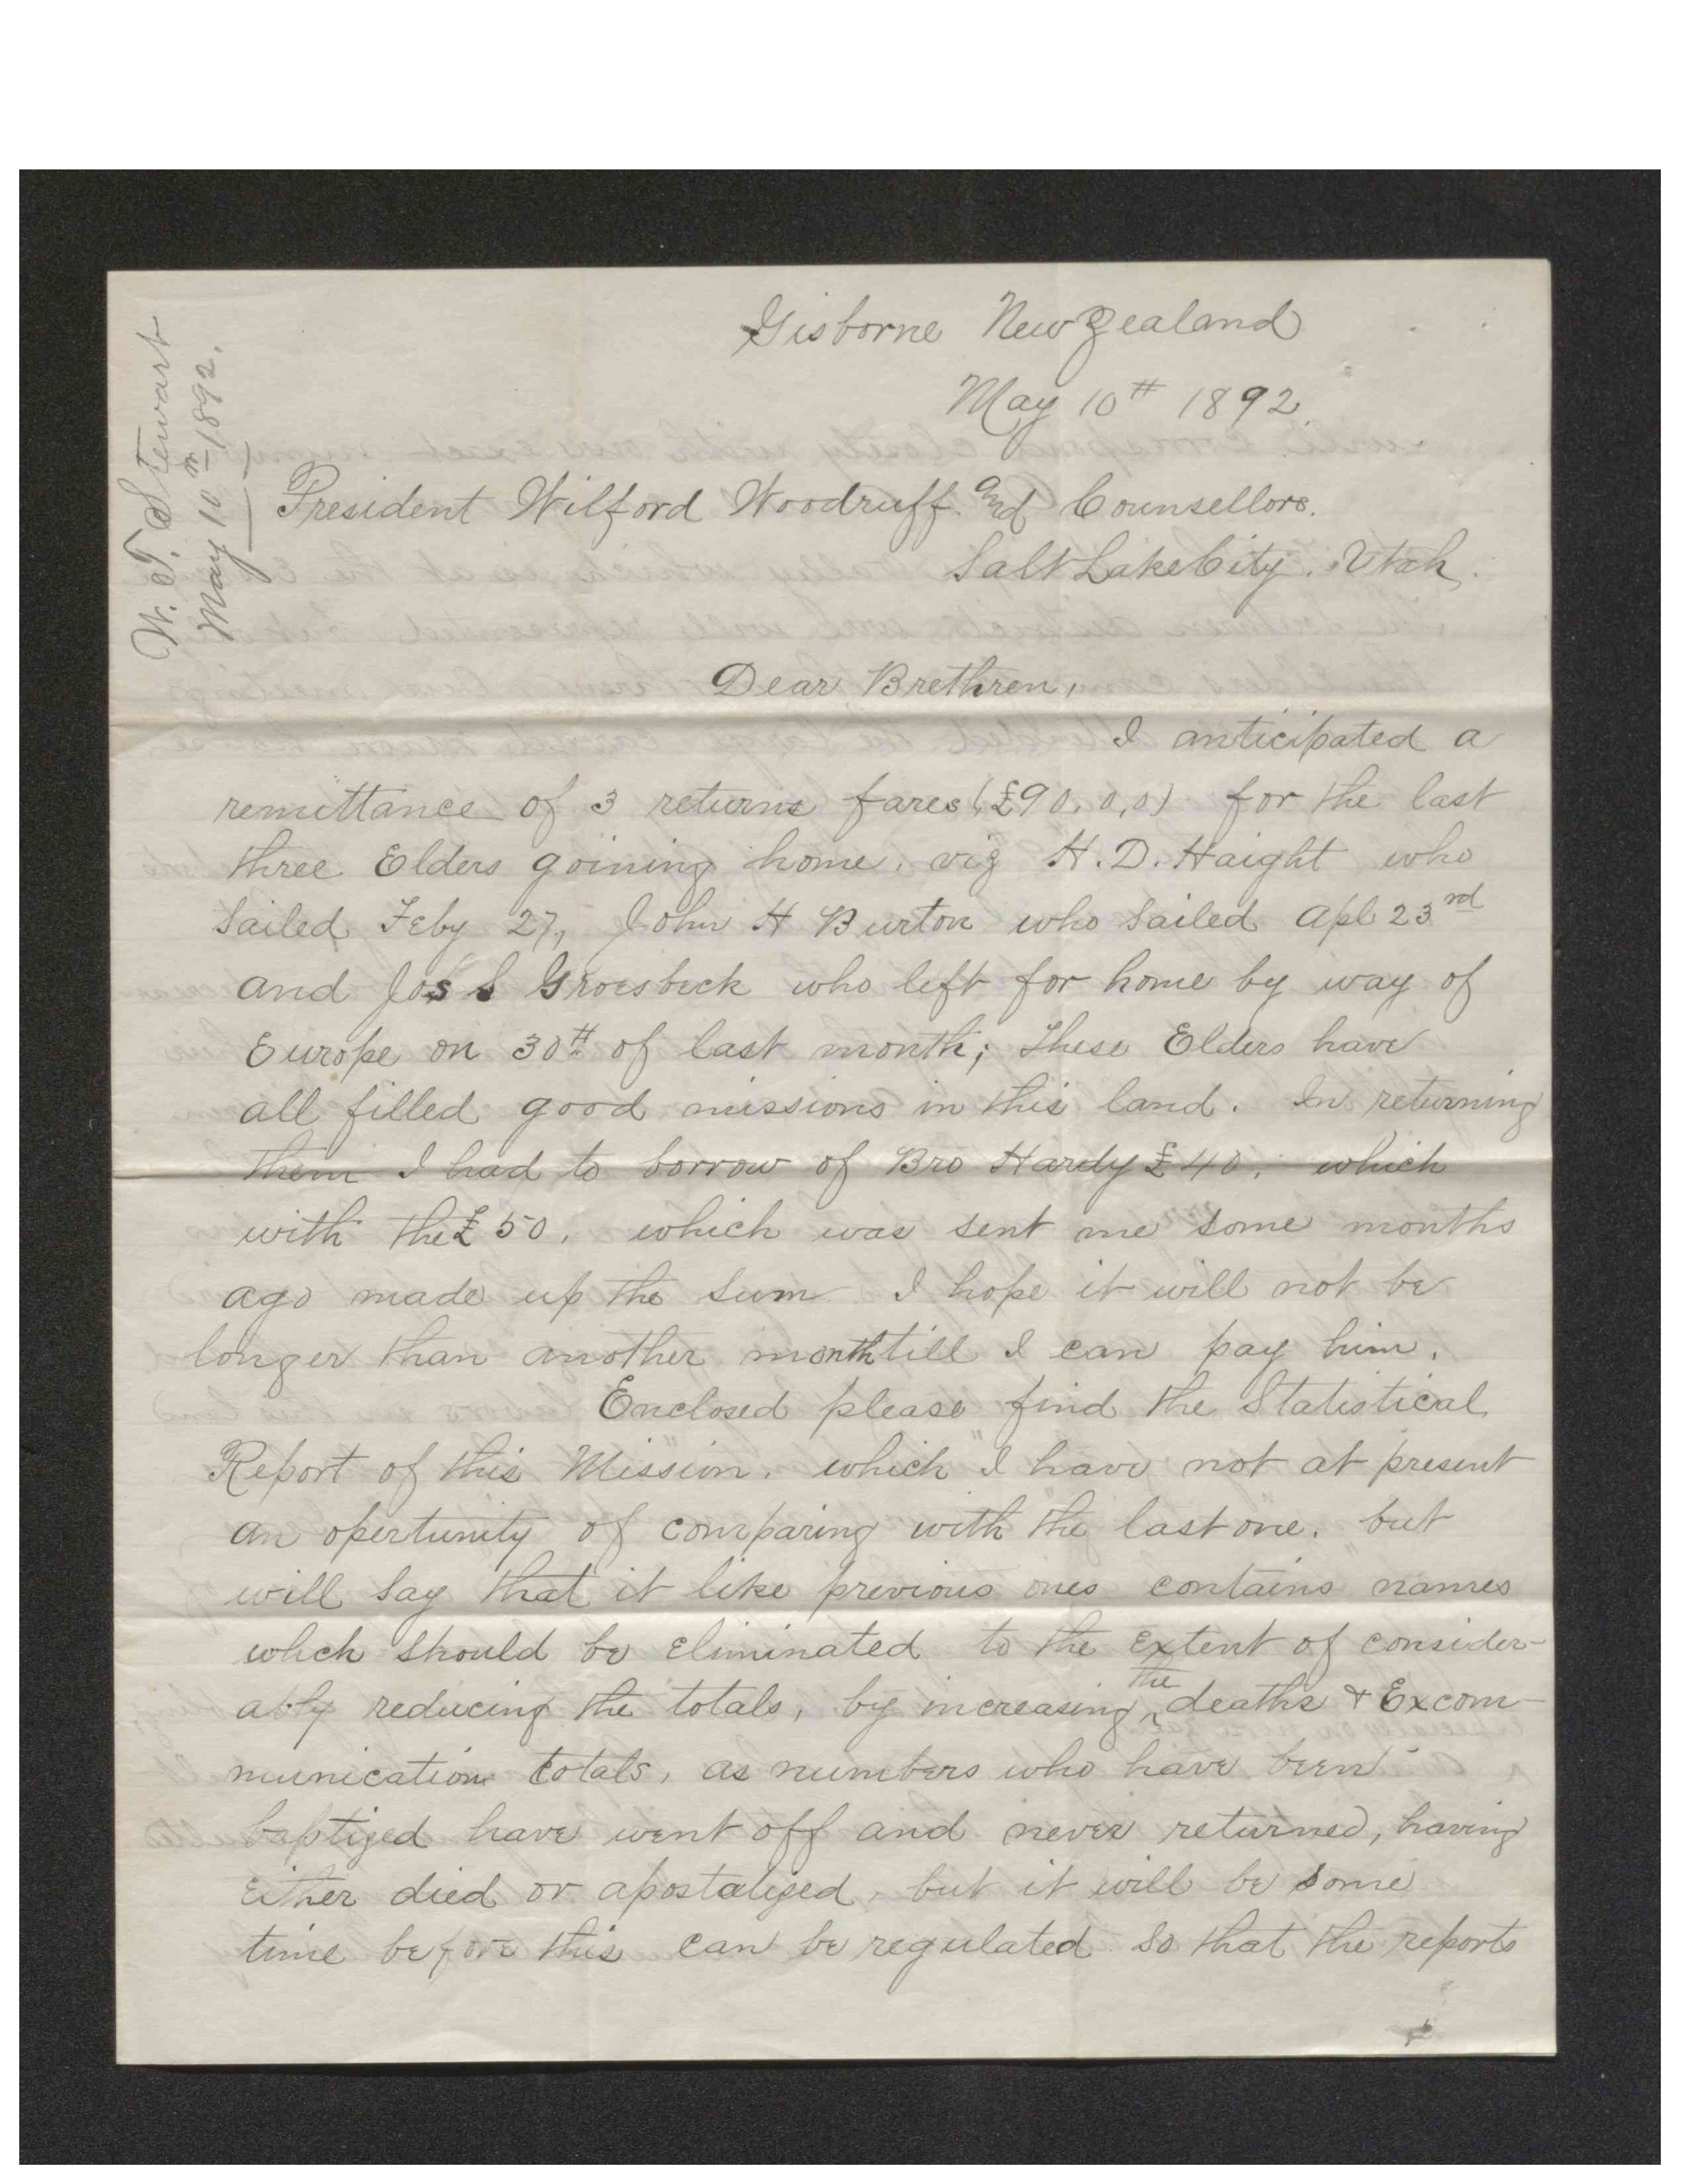 W. T. Stewart
May 10th 1892.
Gisborne New Zealand
May 10th 1892.
President Wilford Woodruff. and Counsellors.
Salt Lake City. Utah.
Dear Brethren,
I anticipated a
remittance of 3 returns fares (£90,0,0) for the last
three Elders goining home. viz H. D. Haight who
sailed Feby 27, John H Burton who sailed Apl 23rd
and Jos S Groesbeck who left for home by way of
Europe on 30th of last month; These Elders have
all filled good missions in this land. In returning
them I had to borrow of Bro Hardy £40, which
with the £50, which was sent me some months
ago made up the sum I hope it will not be
longer than another month till I can pay him.
Enclosed please find the Statistical
Report of this Mission. which I have not at present
an opertunity of comparing with the last one. but
will say that it like previous ones contains names
whch should be eliminated to the extent of consider-
ably reducing the totals, by increasing the deaths & Excom-
munication totals, as numbers who have been
baptized have went off and never returned, having
either died or apostatized, but it will be some
time before this can be regulated so that the reports